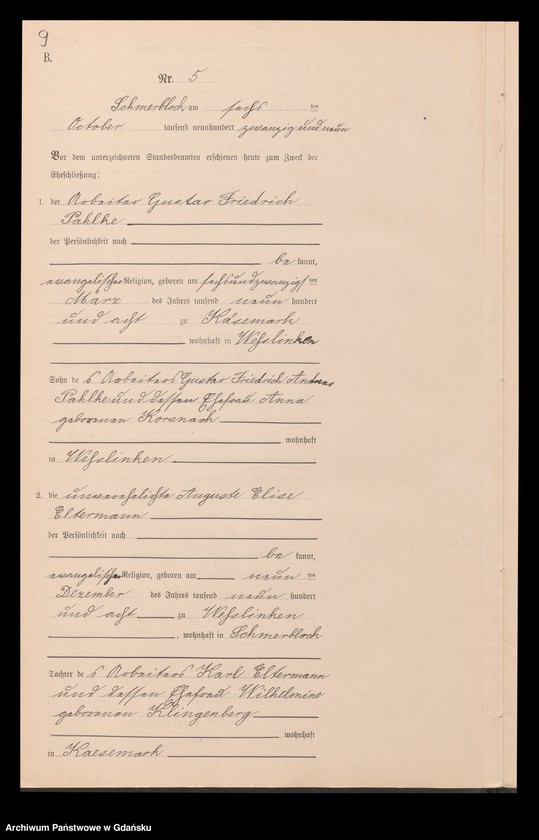 9
B.
Nr. 5
Schmerblock am sechs ten
October tausend neunhundert zwanzig und neun
Vor dem unterzeichneten Standesbeamten erschienen heute zum Zweck der
Eheschließung:
1. der Arbeiter Gustav Friedrich
Pahlke
der Persönlichkeit nach
be kannt,
evangelischer Religion, geboren am sechsundzwanzigsten
März des Jahres tausend neun hundert
und acht zu Käsemark
wohnhaft in Weßlinken
Sohn de s Arbeiters Gustav Friedrich Andreas
Pahlke und dessen Ehefrau Anna
geborenen Korsnack
wohnhaft
in Weßlinken
2. die unverehelichte Auguste Elise
Eltermann
der Persönlichkeit nach
be kannt,
evangelischer Religion, geboren am neun ten
Dezember des Jahres tausend neun hundert
und acht zu Weßlinken
, wohnhaft in Schmerblock
Tochter de s Arbeiters Karl Eltermann
und dessen Ehefrau Wilhelmine
geborenen Klingenberg
wohnhaft
in Kaesemark
Archiwum Państwowe w Gdańsku